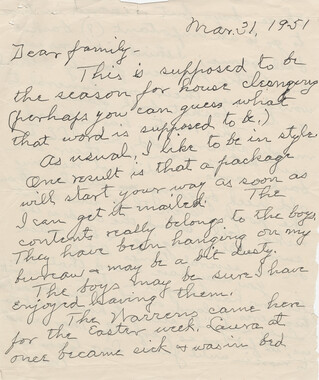 Mar. 31, 1951
Dear family-
This is supposed to be
the season for house cleanging
(perhaps you can guess what
that word is supposed to be.)
As usual, I like to be in style.
One result is that a package
will start your way as soon as
I can get it mailed. The
contents really belongs to the boys.
They have been hanging on my
bureau & may be a bit dusty.
The boys may be sure I have
enjoyed having them.
The Warrens came here
for the Easter week. Laura at
once became sick & was in bed